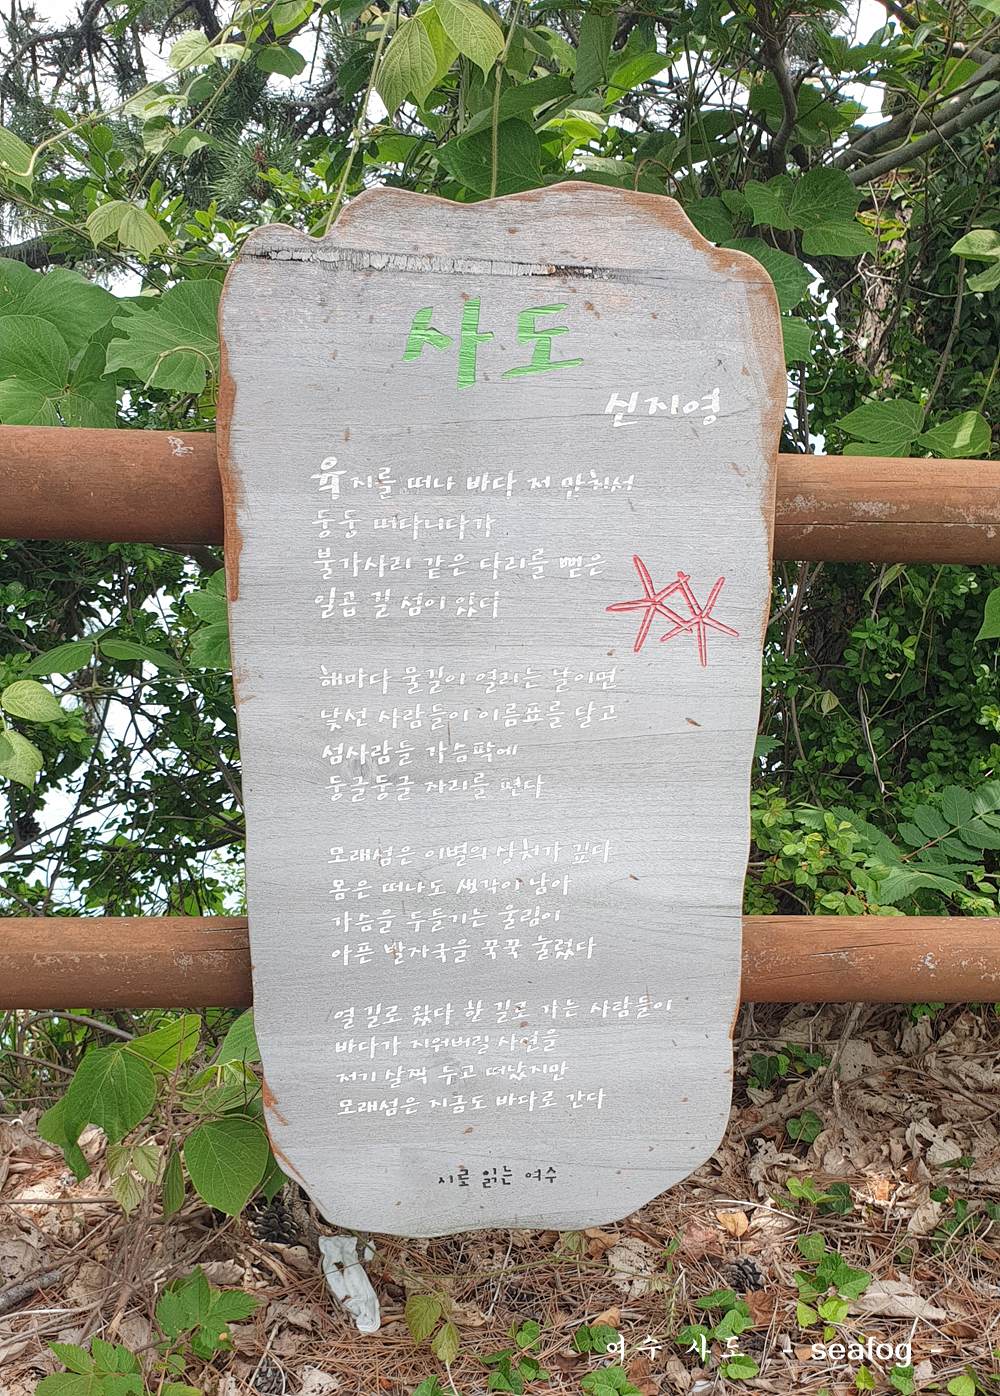 사도
신지영
육지를 떠나 바다 저 만치서
둥둥 떠다니다가
불가사리 같은 다리를 뻗은
일곱 길 섬이 있다
해마다 물길이 열리는 날이면
낯선 사람들이 이름표를 달고
섬사람들 가슴팍에
둥글둥글 자리를 편다
모래섬은 이별의 상처가 깊다
몸은 떠나도 생각이 남아
가슴을 두들기는 울림이
아픈 발자국을 꾹꾹 눌렀다
열 길로 왔다 한 길로 가는 사람들이
바다가 지워버릴 사연을
저기 살짝 두고 떠났지만
모래섬은 지금도 바다로 간다
시로 읽는 여수
여수 사도 - seafog -